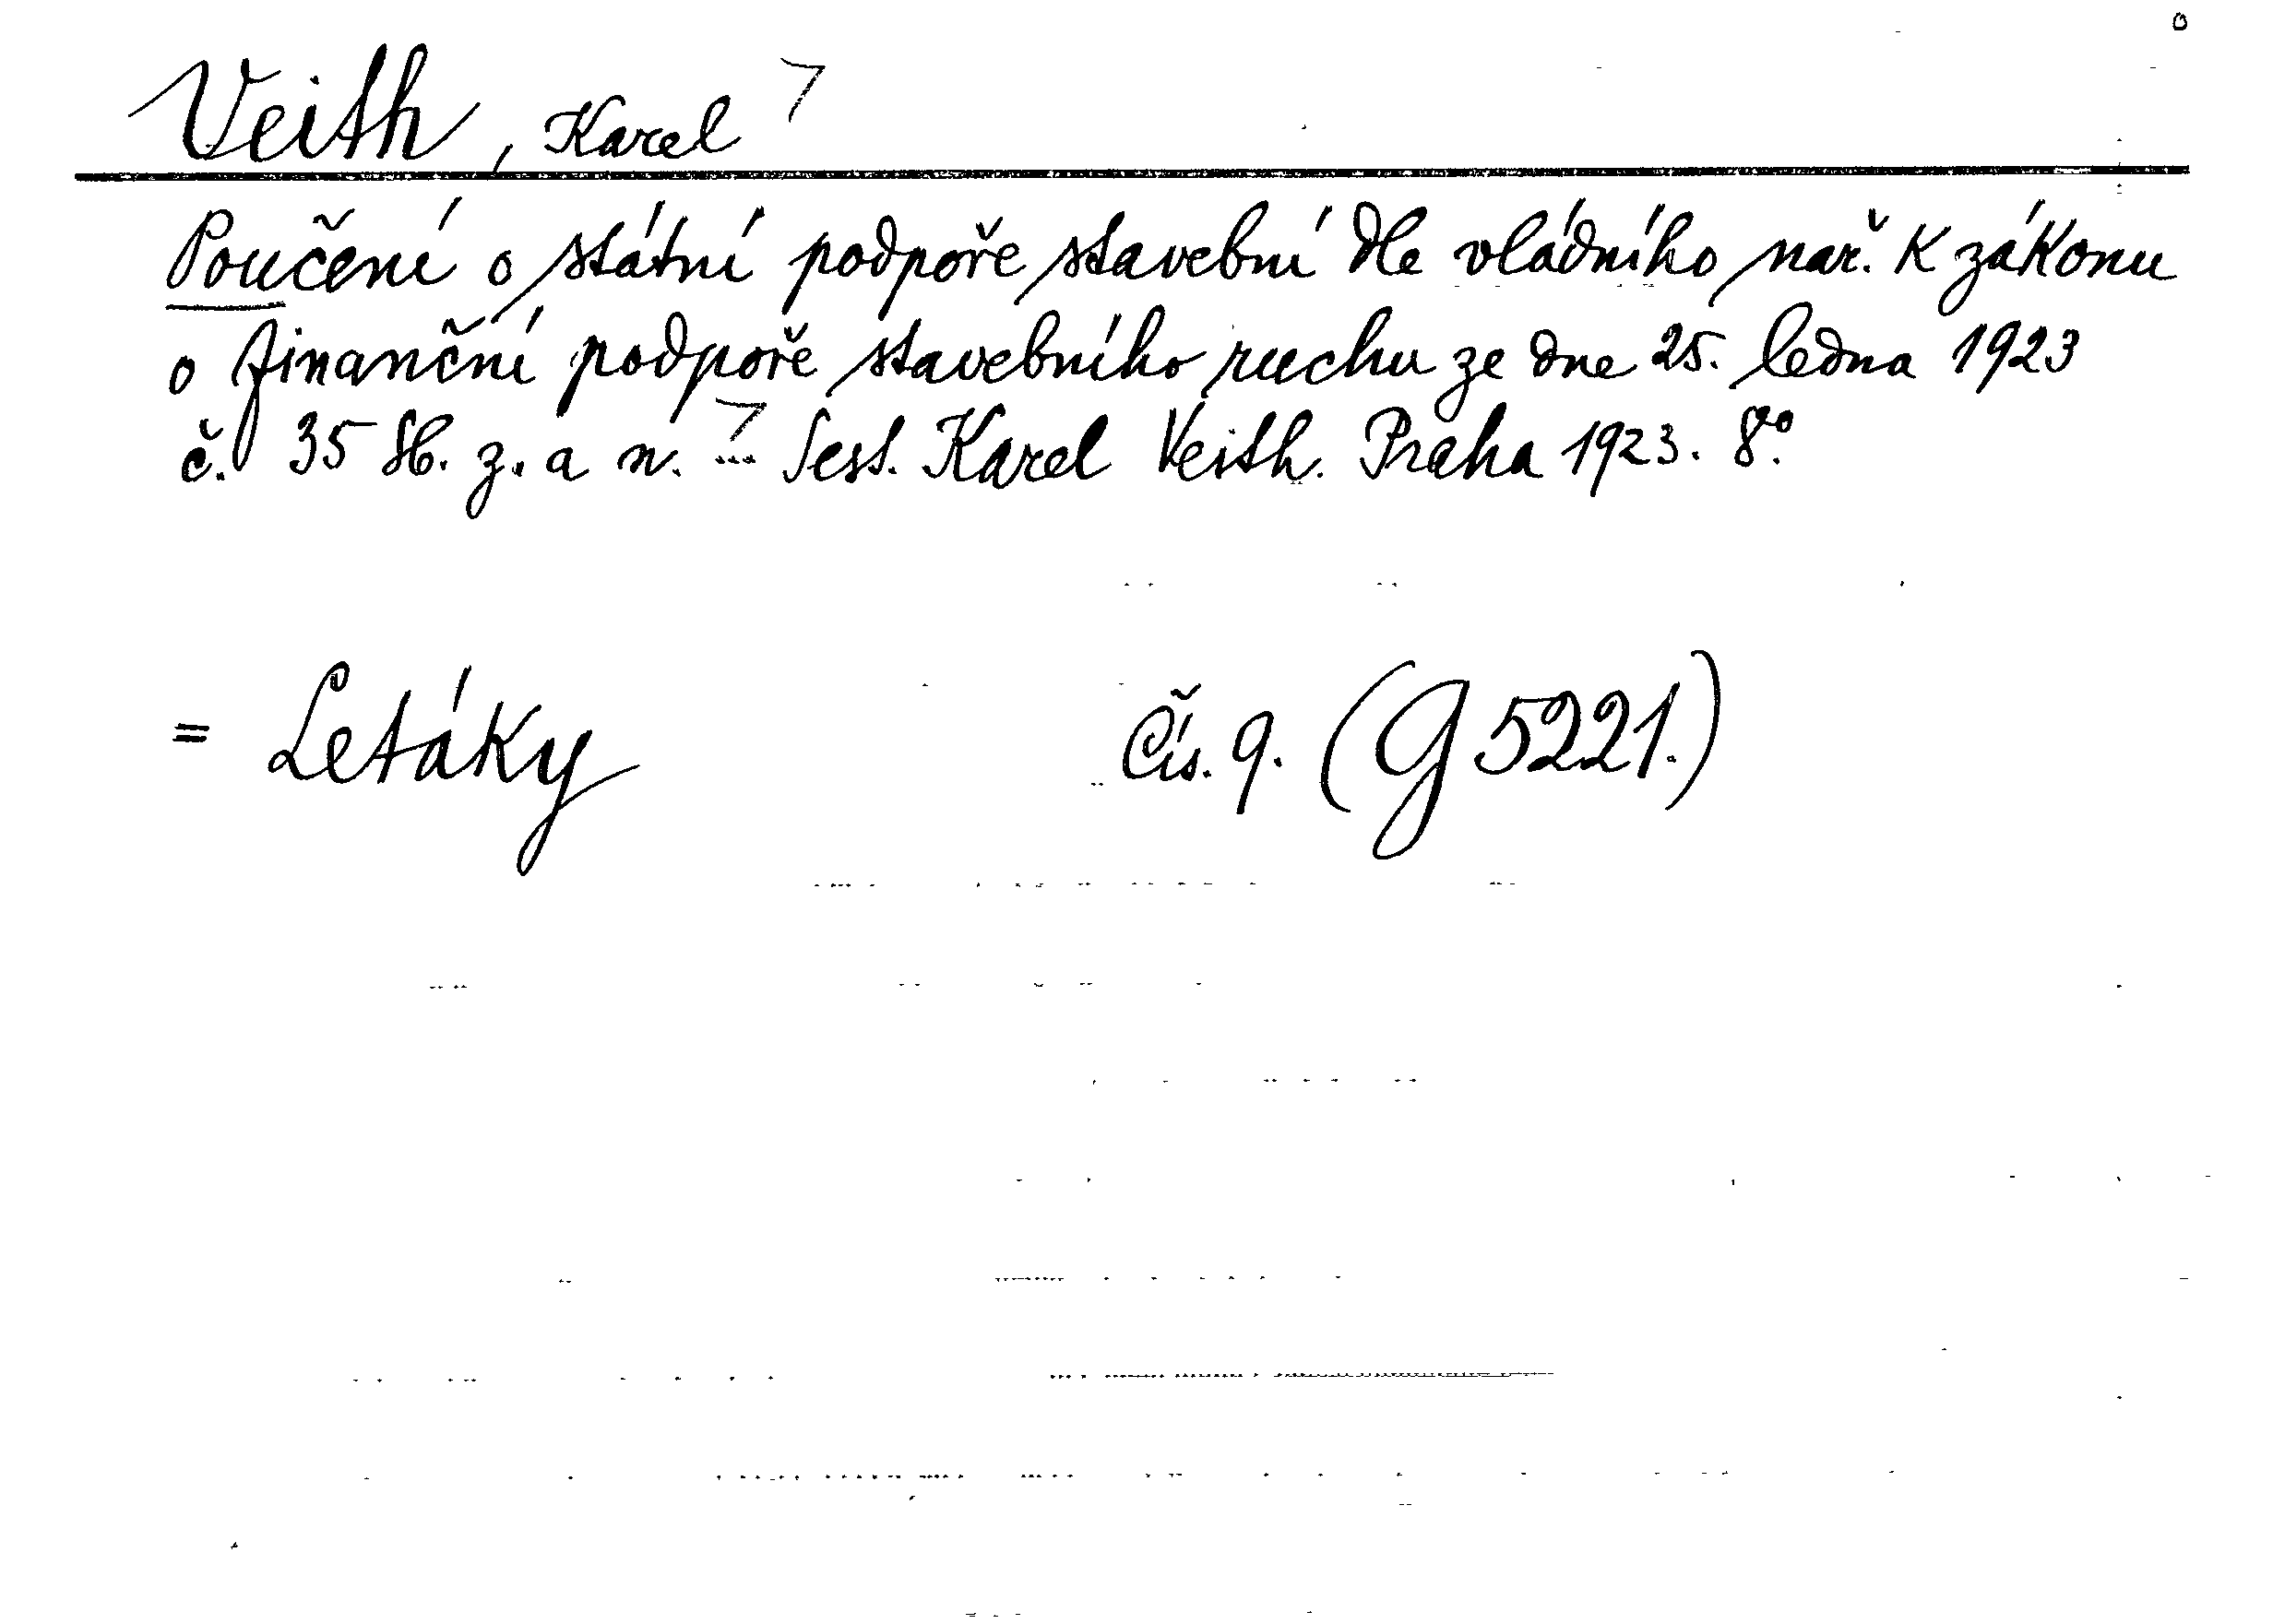 Veith, Karel
Poučení o státní podpoře stavební dle vládního nař. k zákonu
o finanční podpoře stavebního ruchu ze dne 25. ledna 1923
č. 35 Sb. z. a n. ... Sest. Karel Veith. Praha 1923. 8°.
= Letáky Čís. 9. (G 5221.)